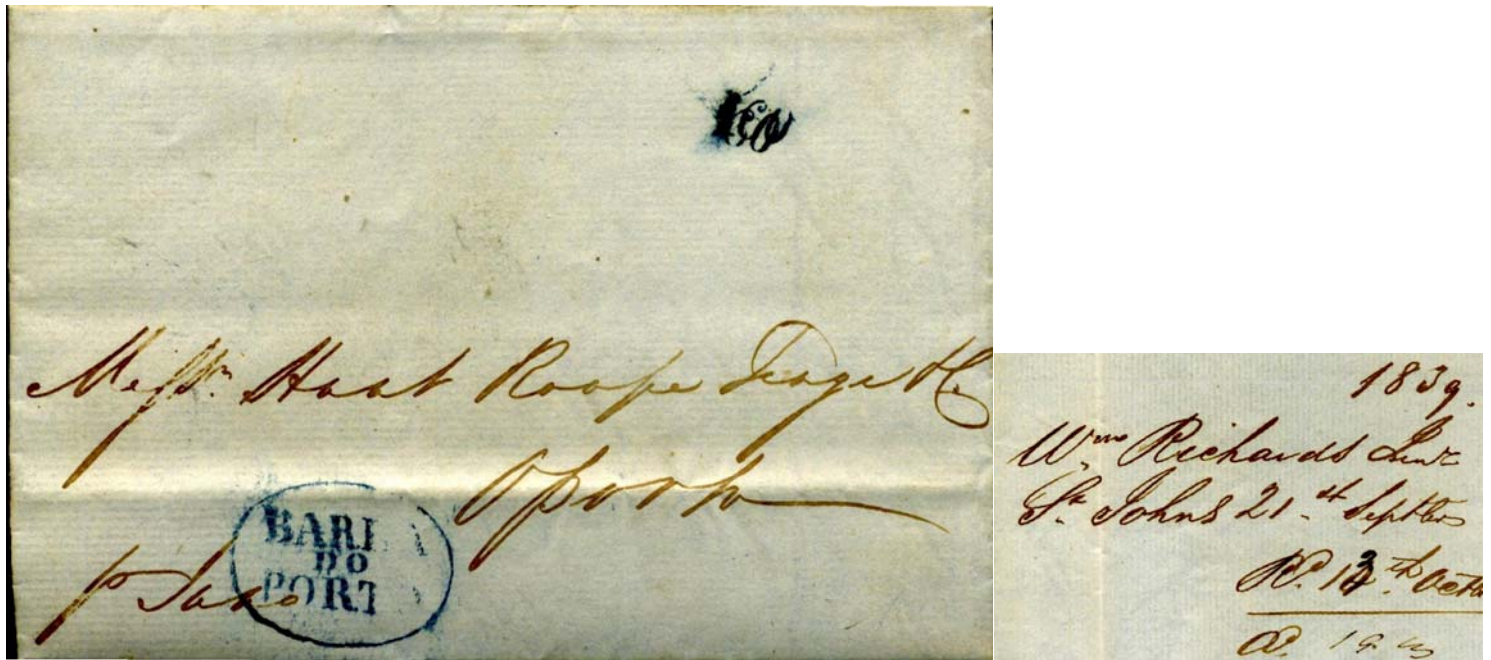 160
Messrs. Hunt Roope Teage & Co
Oporto
BARRA
DO
PORTO
p Jano
1839.
Wm. Richards Junr
St. Johns 21st Septber
R. 13th Octb
A. 19